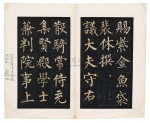 賜紫金魚袋
裴休撰
議大夫守右
散騎常侍充
集賢殿學士
兼判院事上